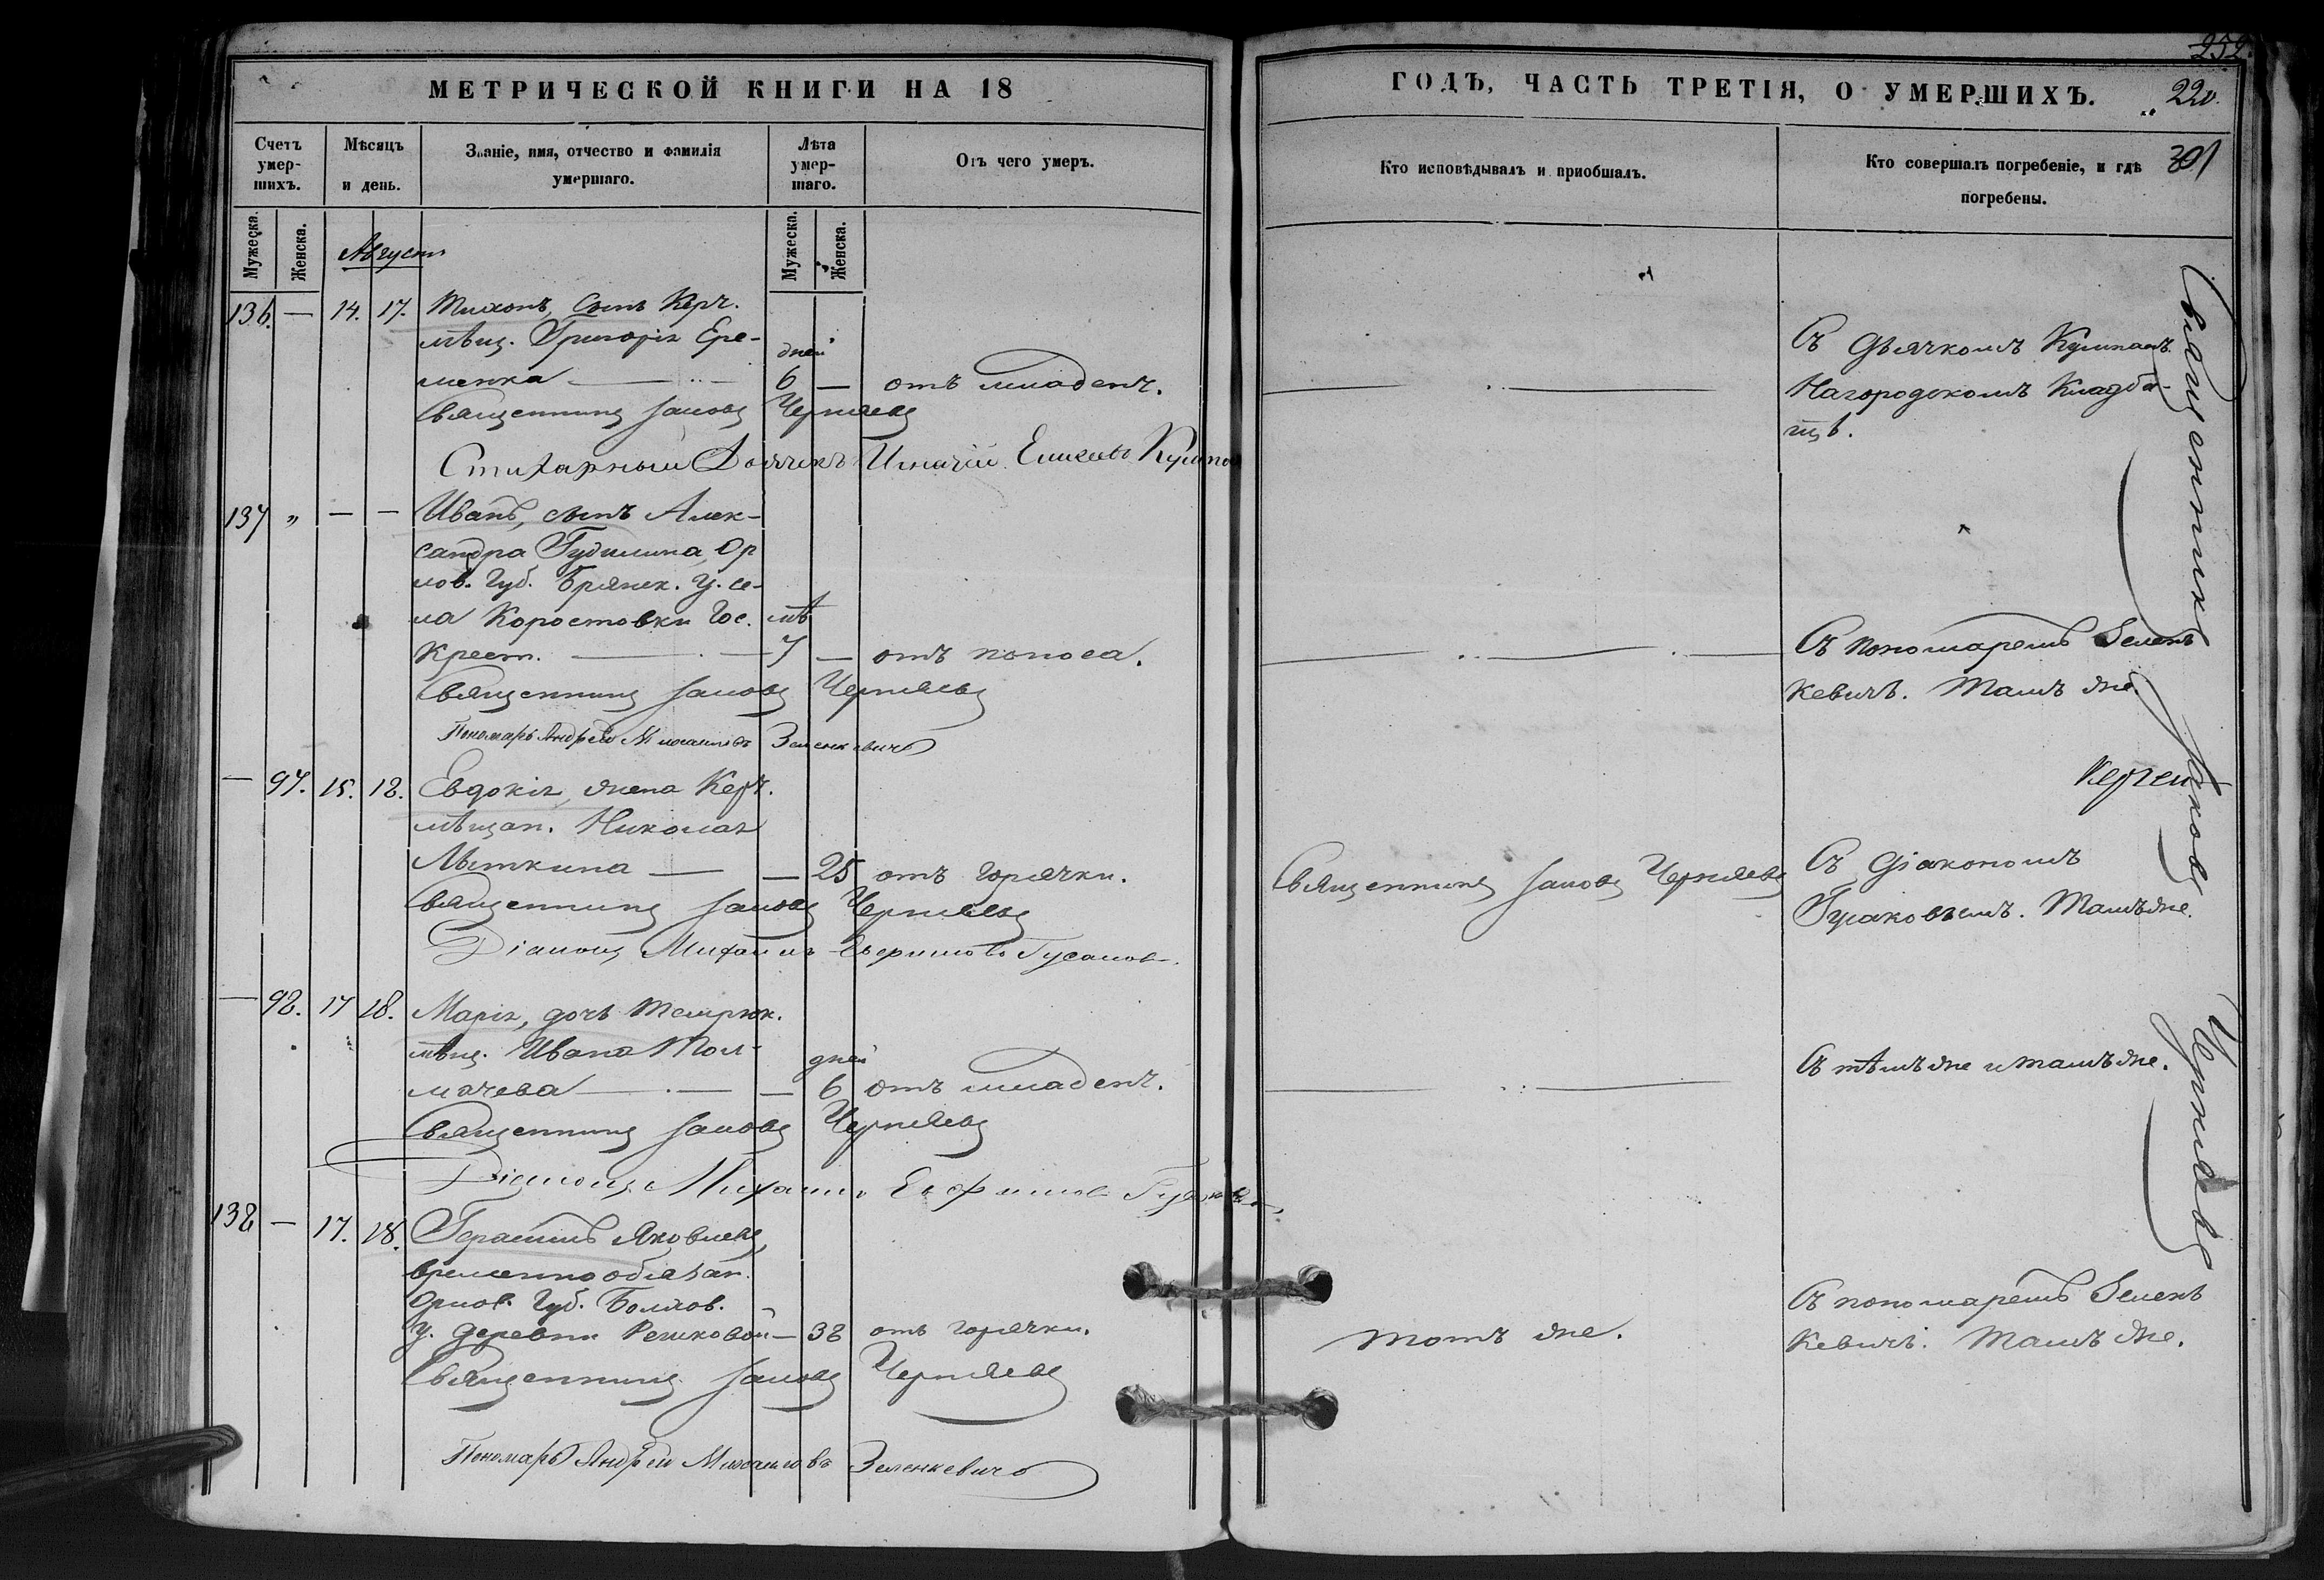 МЕТРИЧЕСКОЙ КНИГИ НА 18
Счетъ умер-шихъ.
Мѣсяцъ и день.
Званіе, имя, отчество и фамилія умершаго.
Лѣта умер-шаго.
Отъ чего умеръ.
Мужеска.
Женска.
Августъ
Мужеска.
Женска.
136. — 14. 17. Тихонъ, сынъ Керч.
мѣщ. Григорія Ере-
дней
менка — 6 — отъ младенч.
Священникъ Іаковъ Черняевъ
Стихарный Дьячекъ Игнатій
137 „ — — Иванъ, сынъ Алек-
сандра Гудилина, Ор
лов. Губ. Брянск. у. се-
ла Коростовки Гос. лѣ
Крест. — 7 — отъ поноса.
Священникъ Іаковъ Черняевъ
Пономарь Андрей Михаиловъ Зеленкевичъ
— 97. 15. 18. Евдокія, жена Керч.
мѣщан. Николая
Мыткина — — 25 отъ горячки.
Священникъ Іаковъ Черняевъ
Діаконъ Михаилъ Гусаковъ
— 98. 17 18. Марія, дочь Темрюк.
мѣщ. Ивана Тол-
дней
мачева — — 6 отъ младенч.
Священникъ Іаковъ Черняевъ
Діаконъ Михаилъ Гусаковъ
138 — 17. 18. Герасимъ Яковлевъ,
временно обязан.
Орлов. Губ. Болхов.
у. деревни Решковой — 38 отъ горячки.
Священникъ Іаковъ Черняевъ
Пономарь Андрей Михаиловъ Зеленкевичъ
252.
ГОДЪ, ЧАСТЬ ТРЕТІЯ, О УМЕРШИХЪ.
220.
301
Кто исповѣдывалъ и приобщалъ.
Кто совершалъ погребеніе, и гдѣ погребены.
Съ Дьячкомъ
На городскомъ Кладби-
щѣ.
Съ пономаремъ Зелен
кевичъ. Тамъ же.
Священникъ Іаковъ Черняевъ
Съ Діакономъ
Гусаковымъ. Тамъ же.
Съ тѣмъ же и тамъ же.
Тотъ же.
Съ пономаремъ Зелен
кевичъ. Тамъ же.
Священникъ Іаковъ Черняевъ